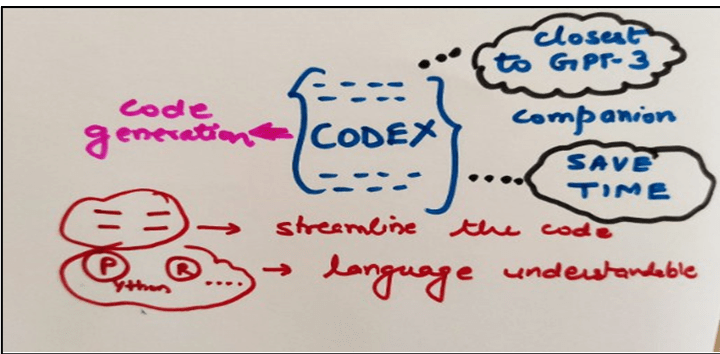 closest
to GPT-3
code
generation
CODEX
companion
SAVE
TIME
streamline the code
Python R ....
language understandable